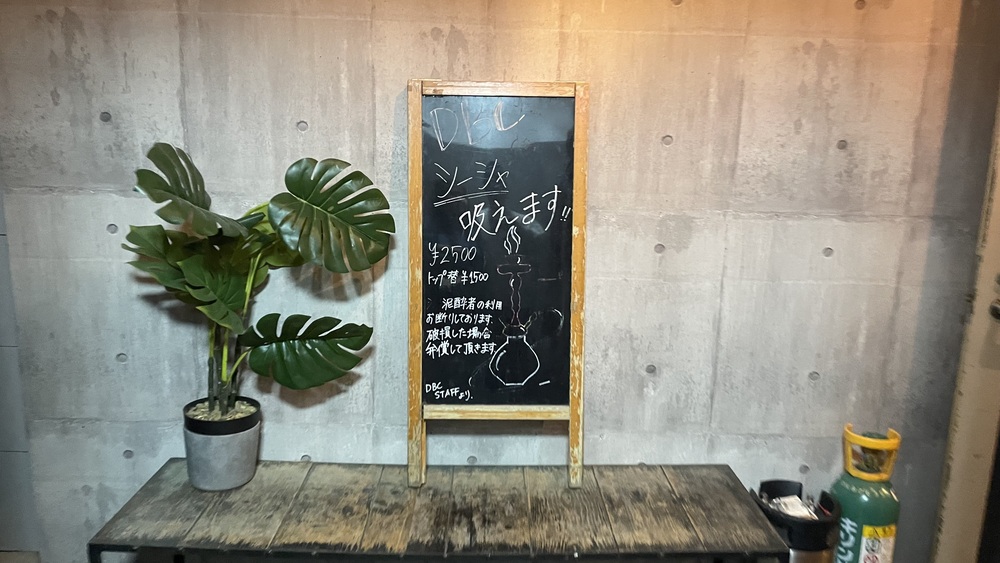 DBC
シーシャ
吸えます!!
¥2500
トップ替¥1500
泥酔者の利用
お断りしております。
破損した場合
弁償して頂きます。
DBC
STAFFより.